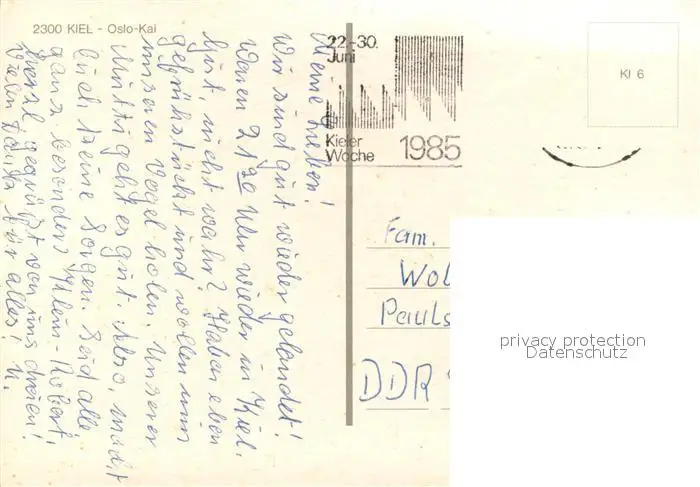 2300 KIEL - Oslo-Kai
Meine Lieben!
Wir sind gut wieder gelandet!
Waren 21²⁰ Uhr wieder in Kiel.
Gut, nicht wahr? Haben eben
gefrühstückt und wollen nun
unseren Vogel holen. Unserer
Mutti geht es gut. Also, macht
Euch keine Sorgen. Seid alle
ganz besonders Klein-Robert,
herzl. gegrüßt von uns dreien!
Vielen Dank für alles! U.
22.-30.
Juni
Kieler
Woche 1985
KI 6
Fam.
Wol
Pauls
DDR
privacy protection
Datenschutz